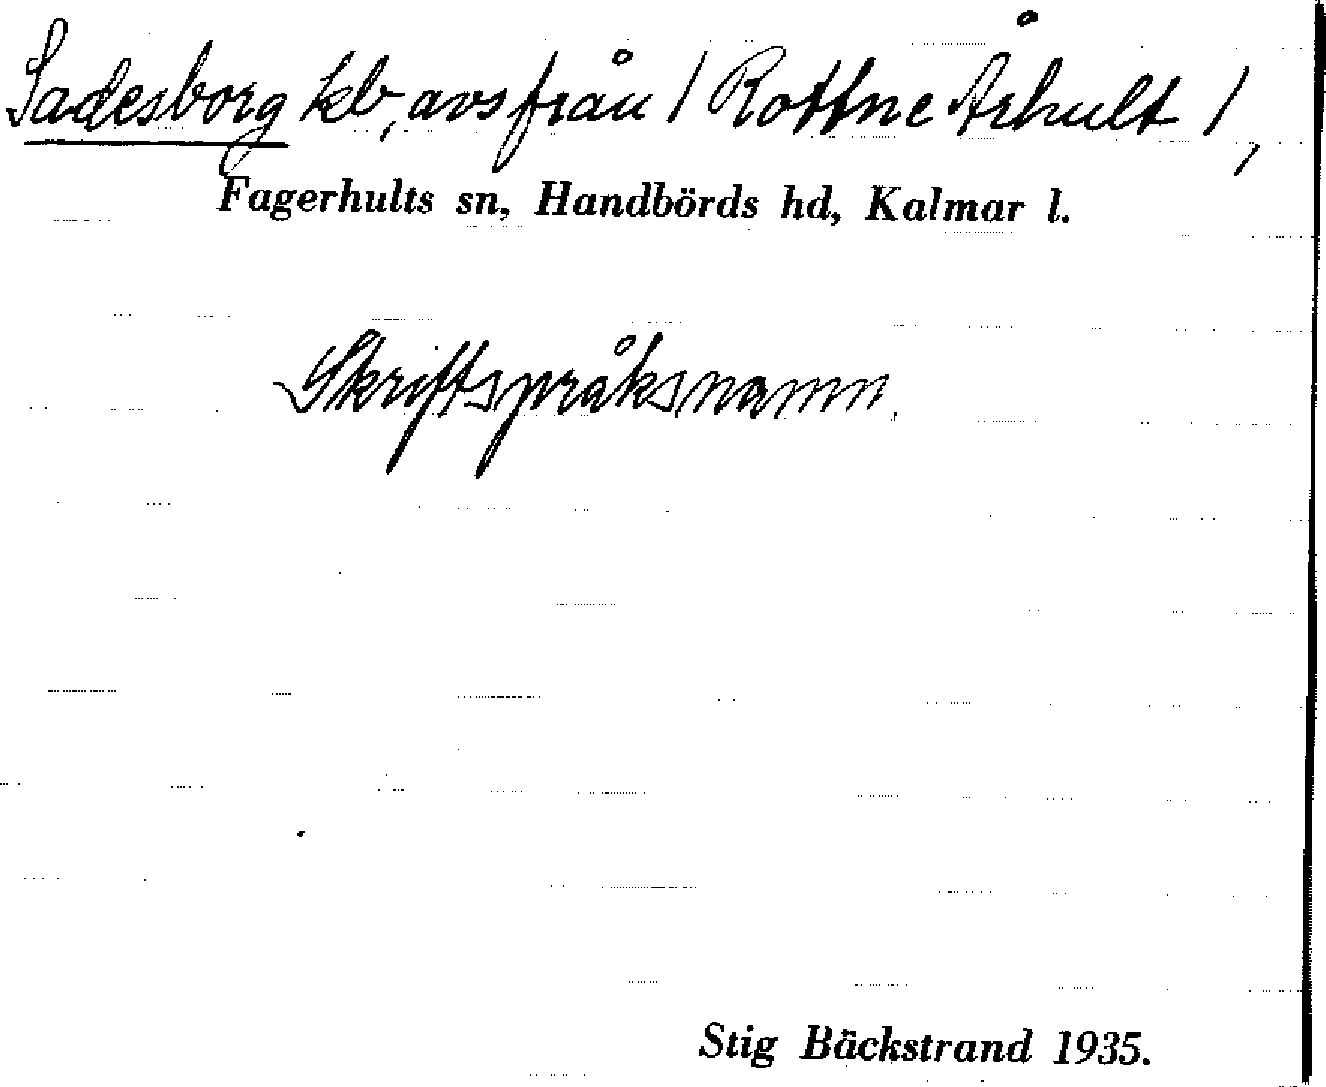 Sadesborg kb, avs från / Rottne Århult /,
Fagerhults sn, Handbörds hd, Kalmar l.
Skriftspråksnamn.
Stig Bäckstrand 1935.